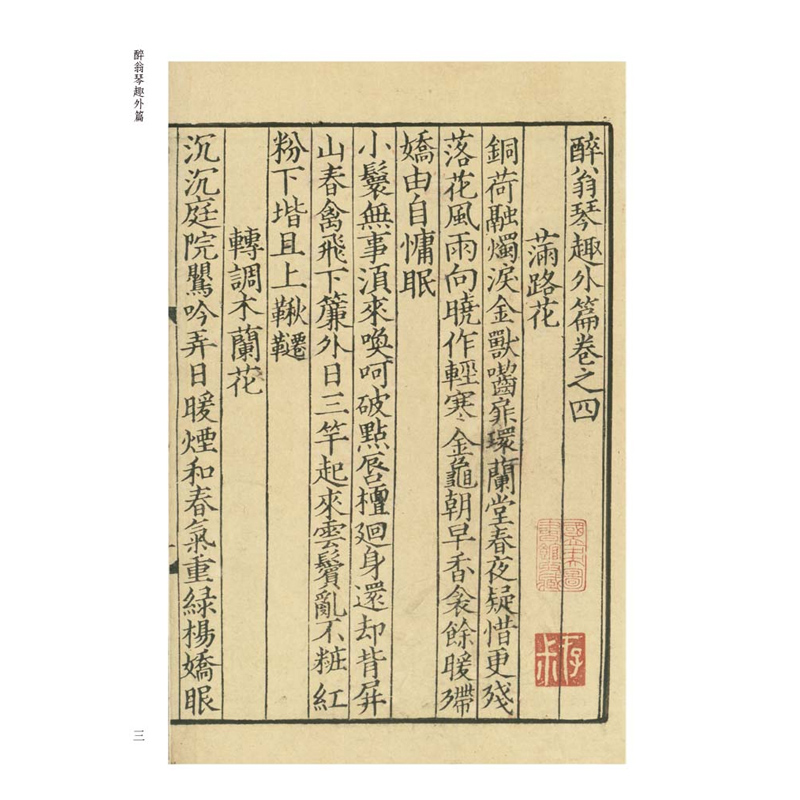 醉翁琴趣外篇卷之四
滿路花
銅荷融燭淚金獸嚙扉環蘭堂春夜疑惜更殘
落花風雨向曉作輕寒金龜朝早香衾餘暖殢
嬌由自慵眠
小鬟無事湏來喚呵破點唇檀廻身還却背屏
山春禽飛下簾外日三竿起來雲鬢亂不粧紅
粉下堦且上鞦韆
轉調木蘭花
沉沉庭院鸎吟弄日暖煙和春氣重緑楊嬌眼
醉翁琴趣外篇
三